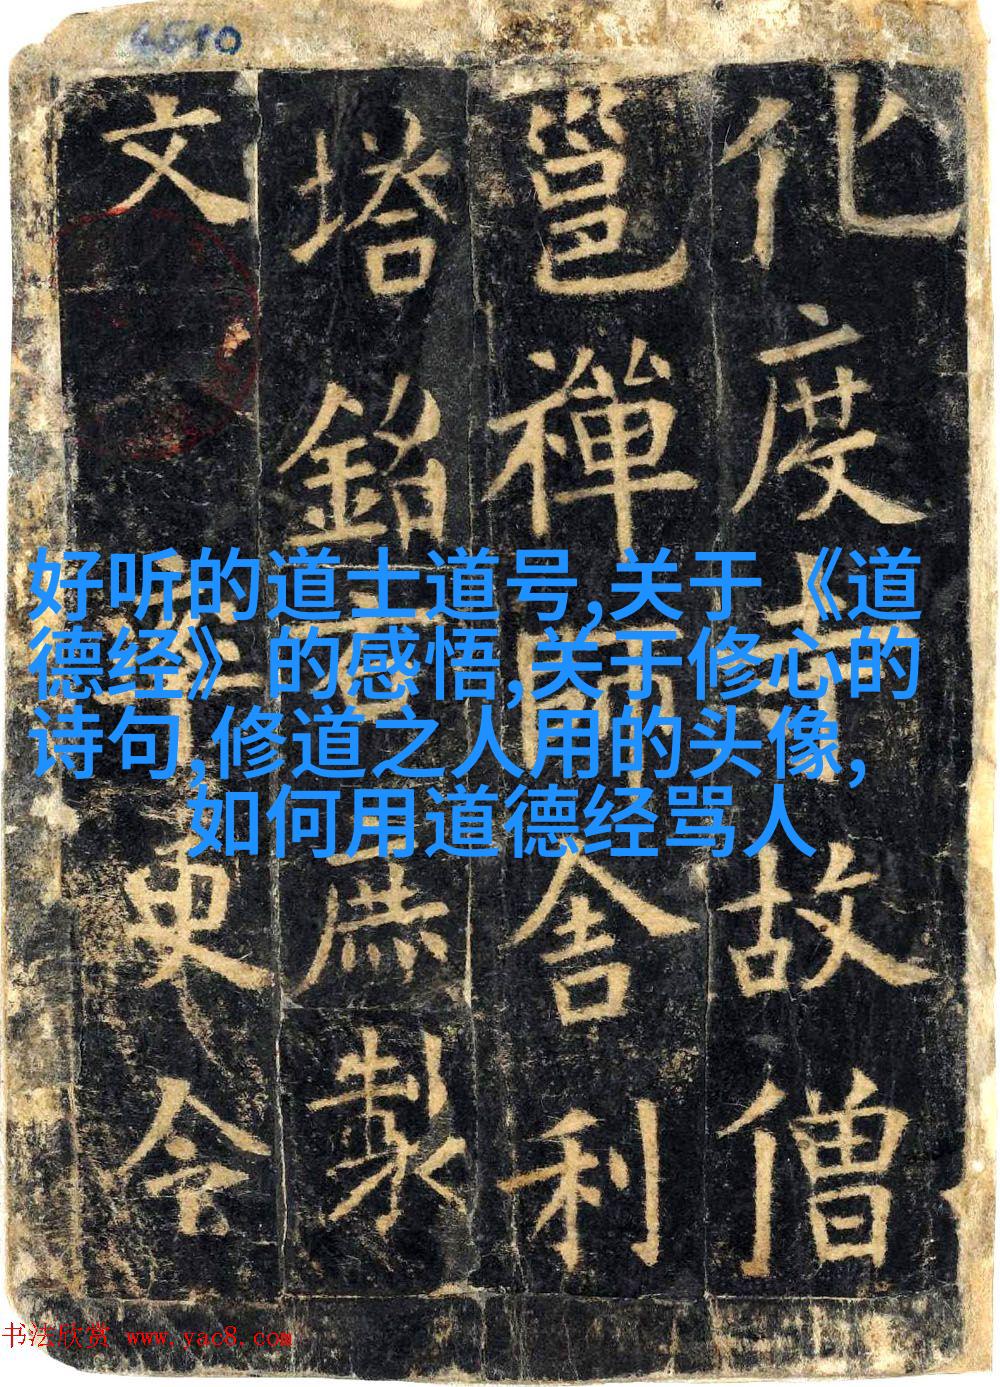 化度寺故僧
邕禪師舍利
塔銘右庶製
文率更令
好听的道士道号,关于《道
德经》的感悟,关于修心的
诗句,修道之人用的头像,
如何用道德经骂人
书法欣赏 www.yac8.com